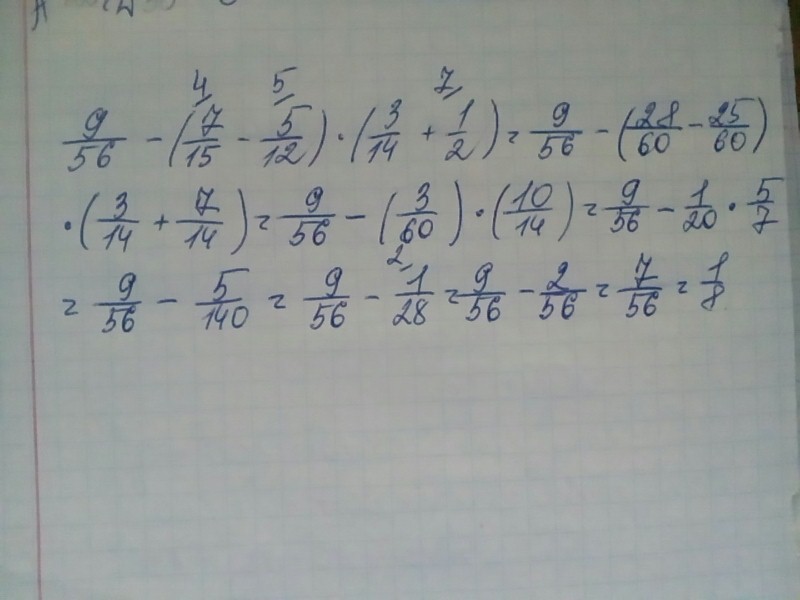 4 5 7
9/56 - (7/15 - 5/12) · (3/14 + 1/2) = 9/56 - (28/60 - 25/60)
· (3/14 + 7/14) = 9/56 - (3/60) · (10/14) = 9/56 - 1/20 · 5/7
2
= 9/56 - 5/140 = 9/56 - 1/28 = 9/56 - 2/56 = 7/56 = 1/8